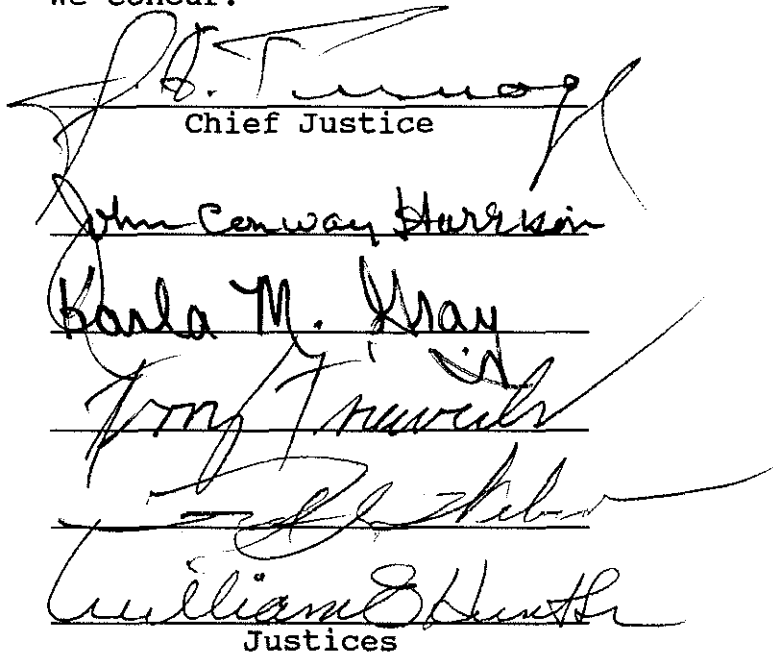 We concur:
J. A. Turnage
Chief Justice
John Conway Harrison
Karla M. Gray
Terry Trieweiler
Weber
William E Hunter
Justices